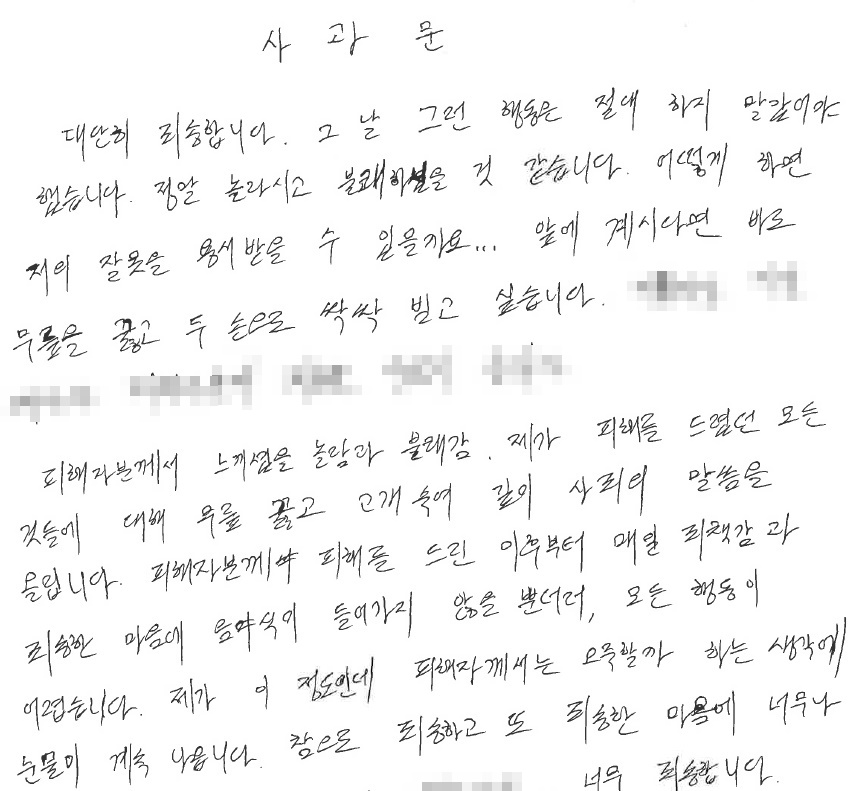 사 과 문
대단히 죄송합니다. 그 날 그런 행동은 절대 하지 말았어야
했습니다. 정말 놀라시고 불쾌하셨을 것 같습니다. 어떻게 하면
저의 잘못을 용서받을 수 있을까요... 앞에 계시다면 바로
무릎을 꿇고 두 손으로 싹싹 빌고 싶습니다.
피해자분께서 느끼셨을 놀람과 불쾌감. 제가 피해를 드렸던 모든
것들에 대해 무릎 꿇고 고개 숙여 깊이 사죄의 말씀을
올립니다. 피해자분께 피해를 드린 이후부터 매일 죄책감과
죄송한 마음에 음식이 들어가지 않을 뿐더러, 모든 행동이
어렵습니다. 제가 이 정도인데 피해자께서는 오죽할까 하는 생각에
눈물이 계속 나옵니다. 참으로 죄송하고 또 죄송한 마음에 너무나
너무 죄송합니다.